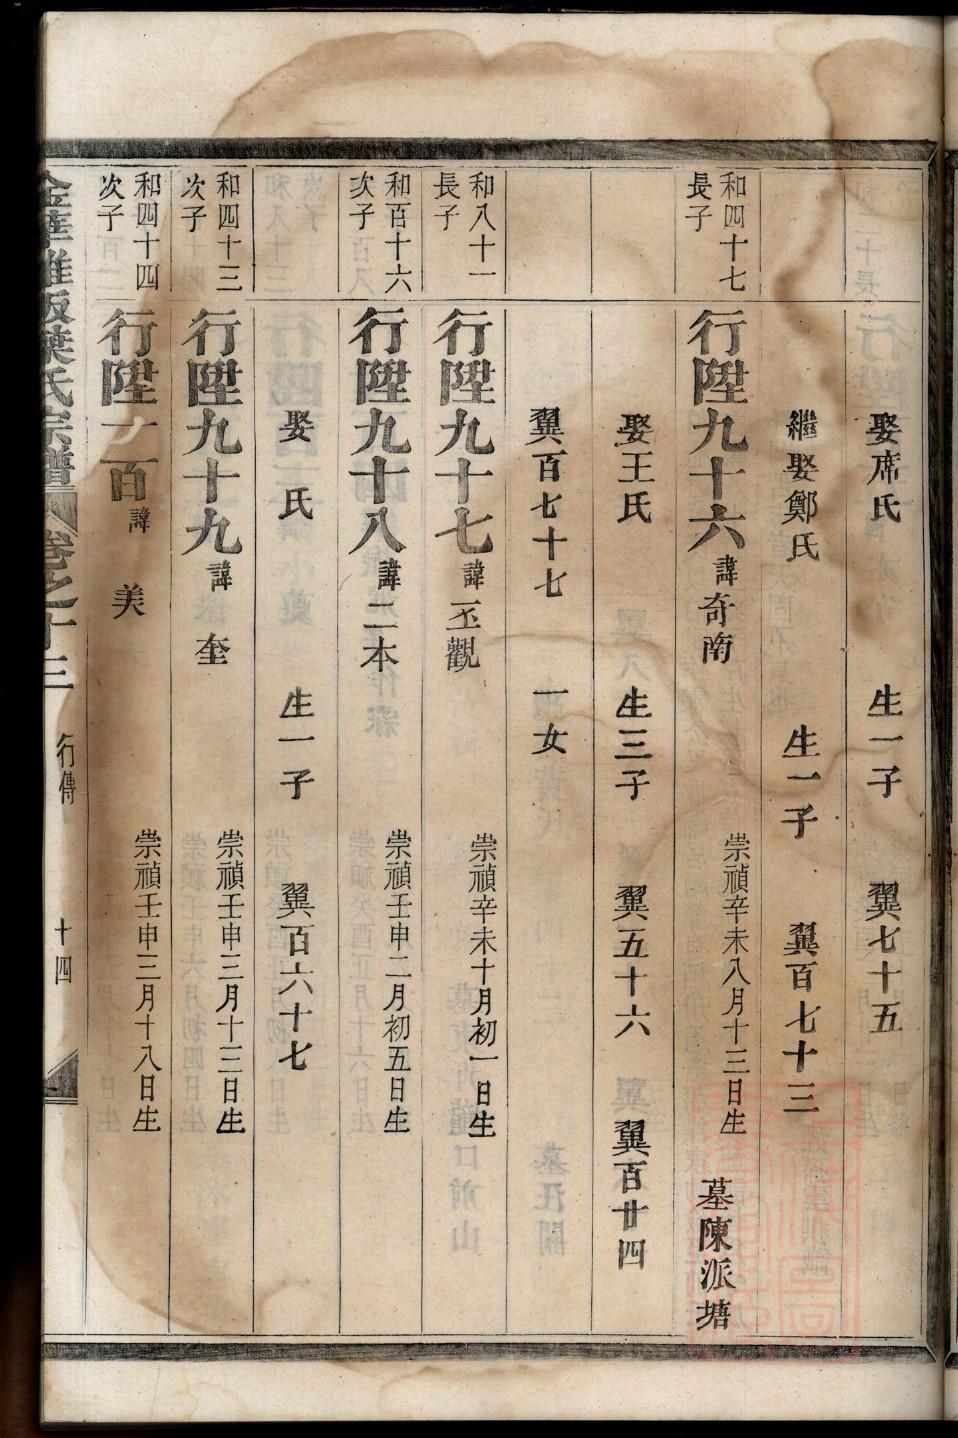 娶席氏 生一子 翼七十五
繼娶鄭氏 生一子 翼百七十三
和四十七長子 行陞九十六 諱奇南 崇禎辛未八月十三日生 墓陳派塘
娶王氏 生三子 翼五十六 翼百廿四
翼百七十七 一女
和八十一長子 行陞九十七 諱丕觀 崇禎辛未十月初一日生
和百十六次子 行陞九十八 諱二本 崇禎壬申二月初五日生
娶 氏 生一子 翼百六十七
和四十三次子 行陞九十九 諱奎 崇禎壬申三月十三日生
和四十四次子 行陞一百 諱美 崇禎壬申三月十八日生
葉氏宗譜 卷之十三 行傳 十四